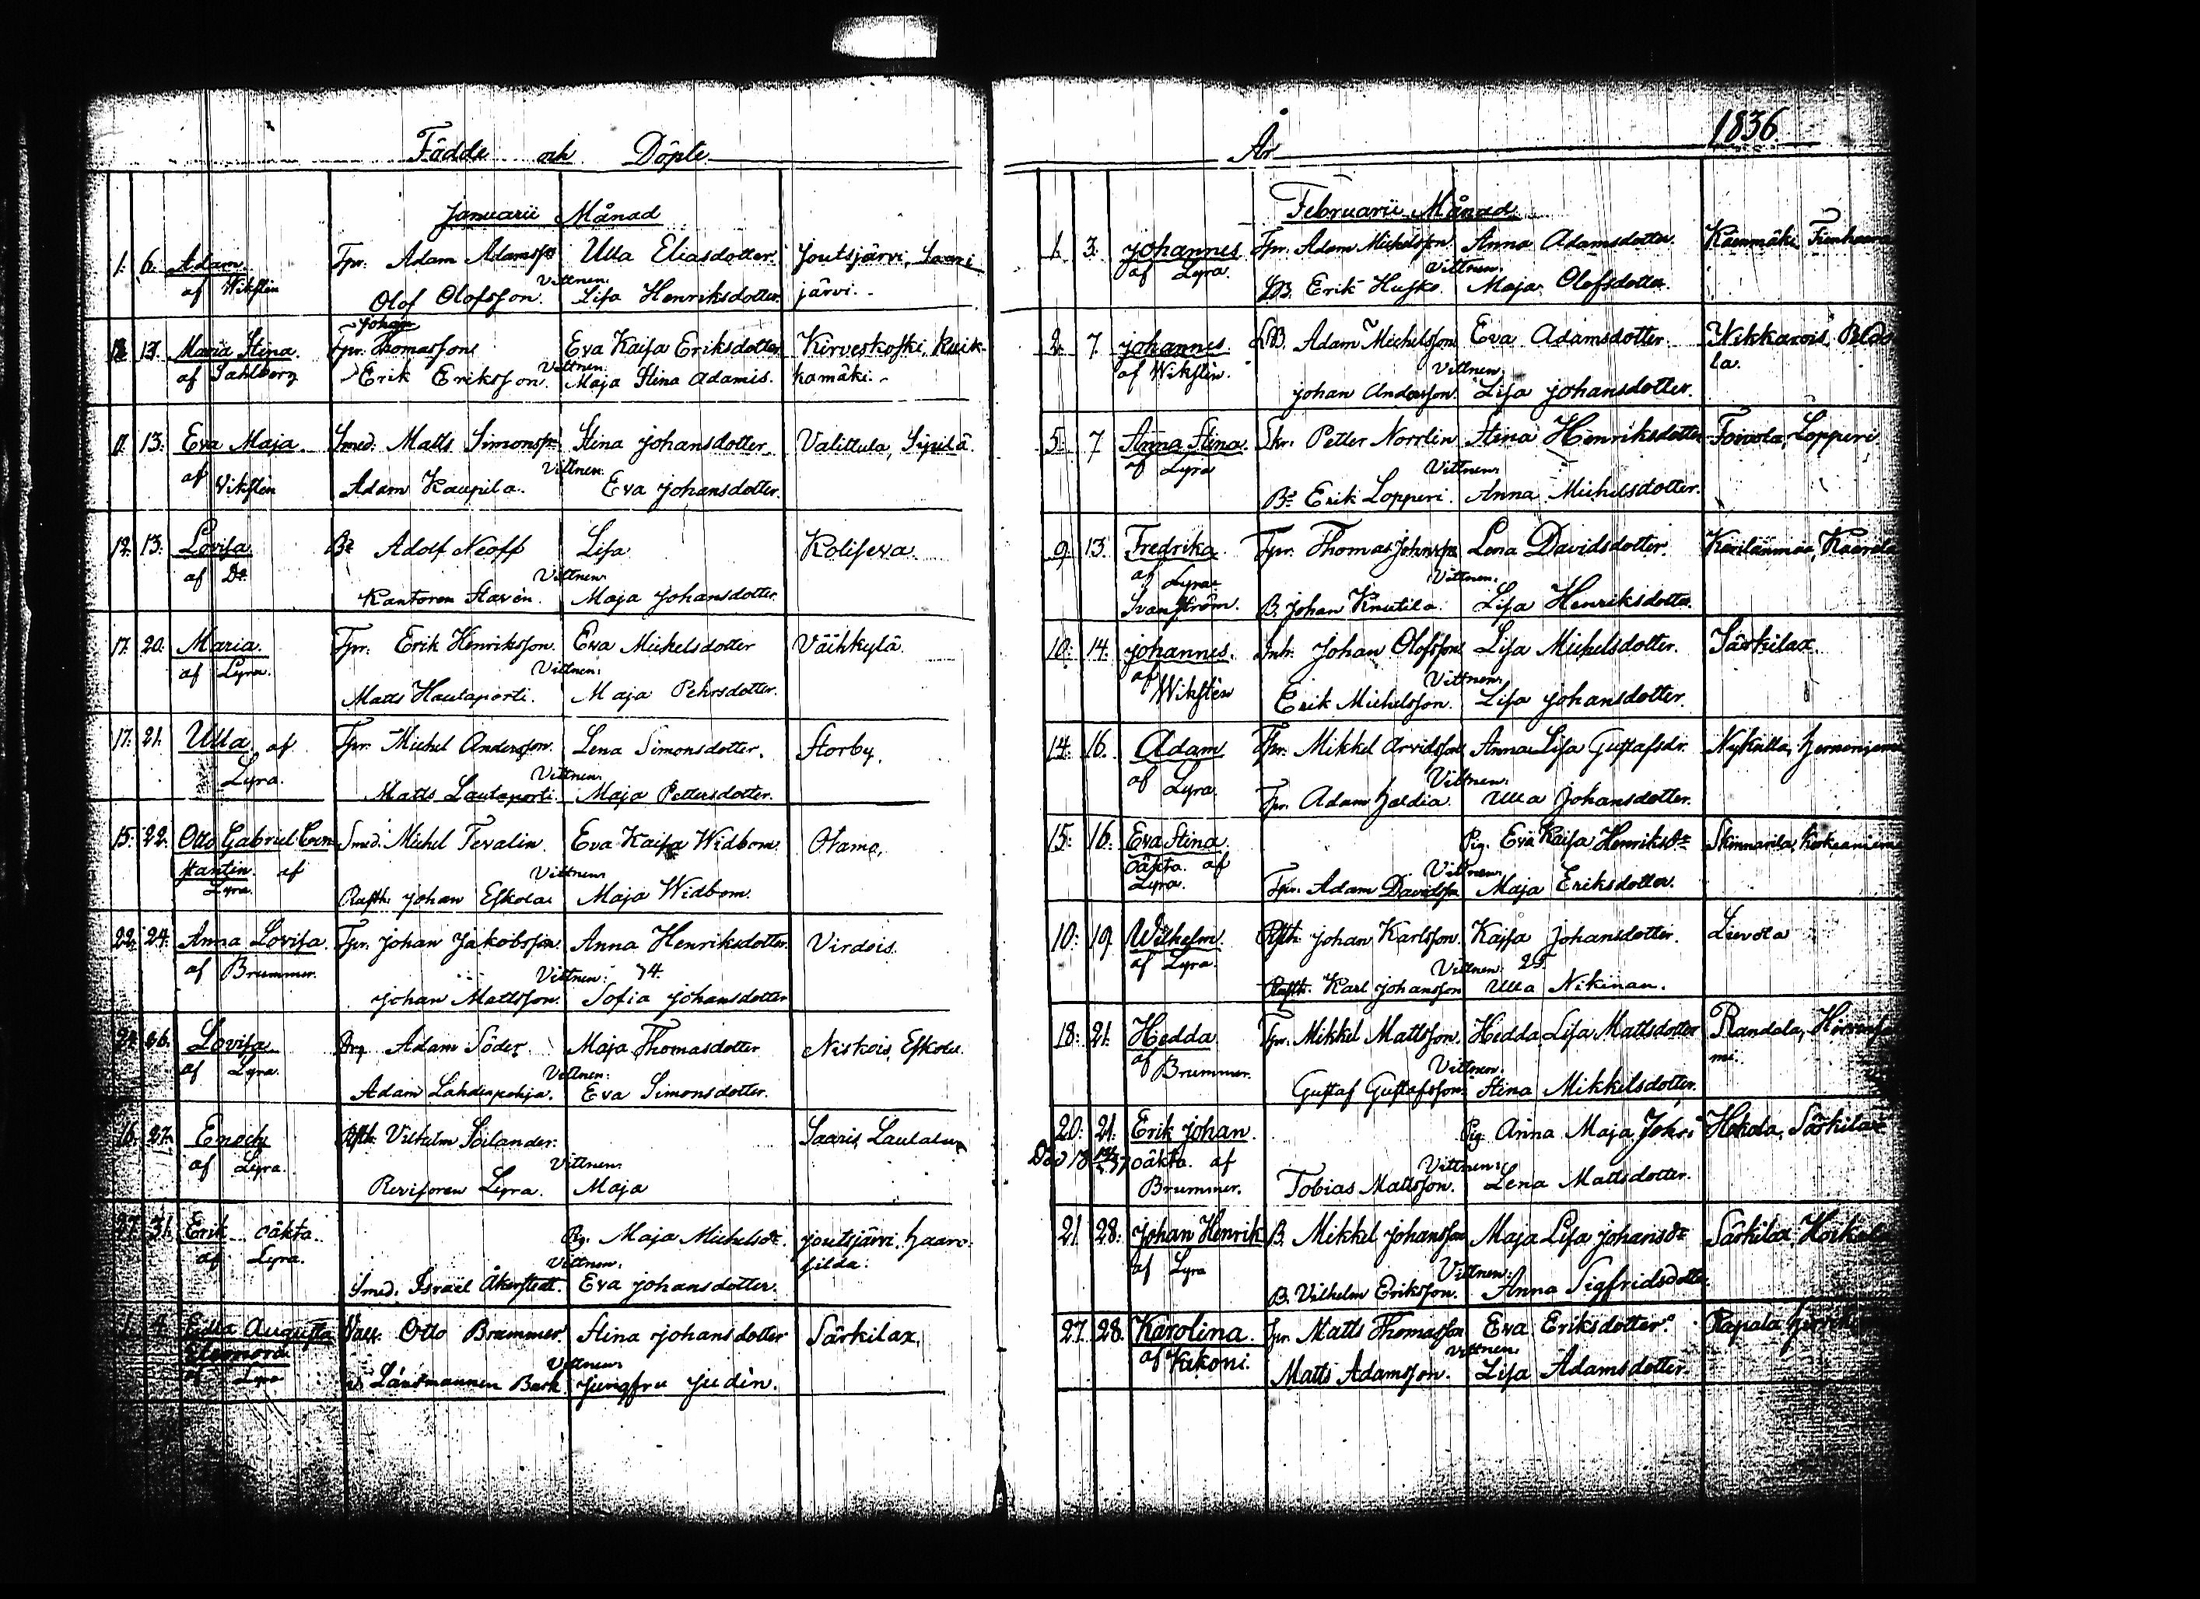 Födde och Döpte
Januarii Månad
1. 6. Adam Tpr. Adam Adamsso Ulla Eliasdotter. Joutsjärvi, Saari
af Wikstén Vittnen. järvi.
Olof Olofsson. Lisa Henriksdotter.
Johan
13. Maria Stina. Tpr. Thomasson Eva Kaisa Eriksdotter Kirveskoski, Kuik
af Sahlberg Vittnen. kamäki.
Erik Eriksson. Maja Stina Adamis.
11. 13. Eva Maja. Smed. Matts Simonss Stina Johansdotter Valittula, Sipilä.
af Vikstén Vittnen.
Adam Kaupila. Eva Johansdotter.
12. 13. Lovisa Bd Adolf Neoff Lisa Koliseva.
af Do Vittnen
Kantoren Stavén. Maja Johansdotter.
17. 20. Maria. Tpr. Erik Henriksson. Eva Mickelsdotter Väihkylä.
af Lyra. Vittnen.
Matts Hautaporti. Maja Pehrsdotter.
17. 21. Ulla af Tpr. Michel Andersson. Lena Simonsdotter. Storby.
Lyra. Vittnen.
Matts Lautaporti. Maja Pettersdotter.
15. 22. Otto Gabriel Con Smed. Michel Tevalin. Eva Kaisa Widbom. Otamo.
stantin. af Vittnen
Lyra. Rusth. Johan Eskola Maja Widbom.
22. 24. Anna Lovisa. Tpr. Johan Jakobsson. Anna Henriksdotter. Virdois.
af Brummer. Vittnen: 74.
Johan Mattsson. Sofia Johansdotter
Lovisa Adam Söder. Maja Thomasdotter Niskois, Eskola.
af Lyra. Vittnen.
Adam Lahdenpohja. Eva Simonsdotter.
16. 27. Enoch Rsth. Vilhelm Soilander. Saaris Lautala
af Lyra. Vittnen.
Revisoren Lyra. Maja
27. 31. Erik oäkta. Pig. Maja Michelsdr. Joutsjärvi. Haaro
af Lyra. Vittnen. silda.
Smed. Israel Åkerstedt. Eva Johansdotter.
1. 4. Edla Augusta Otto Brummer. Stina Johansdotter Särkilax.
Eleonora Vittnen
af Lyra Länsmannen Jungfru Judin.
År 1836
Februarii Månad
1. 3. Johannes Tpr. Adam Michelsson. Anna Adamsdotter. Kaenmäki
af Lyra. Vittnen.
LB. Erik Husko. Maja Olofsdotter.
2. 7. Johannes LB. Adam Michelsson Eva Adamsdotter. Nikkarois
af Wikstén. Vittnen. la.
Johan Andersson. Lisa Johansdotter.
5. 7 Anna Stina. Petter Norrlin Stina Henriksdotter Toivola, Lopperi
af Lyra Vittnen.
Bd Erik Lopperi. Anna Michelsdotter.
9. 13. Fredrika. Tpr. Thomas Johansson Lena Davidsdotter.
af Lyra Vittnen.
Svanström. B. Johan Knutila. Lisa Henriksdotter.
10. 14. Johannes. Inh. Johan Olofsson Lisa Michelsdotter. Särkilax.
af Vittnen.
Wikstén Erik Michelsson. Lisa Johansdotter.
14. 16. Adam Tpr. Mikkel Arvidsson Anna Lisa Gustafsdr. Nykulla,
af Lyra. Vittnen.
Tpr. Adam Haldia. Ulla Johansdotter.
15. 16. Eva Stina. Pig. Eva Kaisa Henriksdr Skinnarila,
oäkta. af Vittnen.
Lyra. Tpr. Adam Davidsson Maja Eriksdotter.
10. 19. Wilhelm. Rsth. Johan Karlsson. Kajsa Johansdotter. Lievola
af Lyra. Vittnen. 25.
Rusth. Karl Johansson Ulla Nikinan.
18. 21. Hedda. Tpr. Mikkel Mattsson. Hedda Lisa Mattsdotter Randala,
af Vittnen. mi.
Brummer. Gustaf Gustafsson. Stina Mikkelsdotter.
20. 21. Erik Johan. Pig. Anna Maja Johs. Särkilax
oäkta. af Vittnen.
Brummer. Tobias Mattsson. Lena Mattsdotter.
21. 28. Johan Henrik B. Mikkel Johansson Maja Lisa Johansdr Särkilax,
af Lyra Vittnen.
B. Vilhelm Eriksson. Anna Sigfridsdotter.
27. 28. Karolina. Tpr. Matts Thomasson Eva Eriksdotter. Rapala
af Kukoni. Vittnen.
Matts Adamsson. Lisa Adamsdotter.